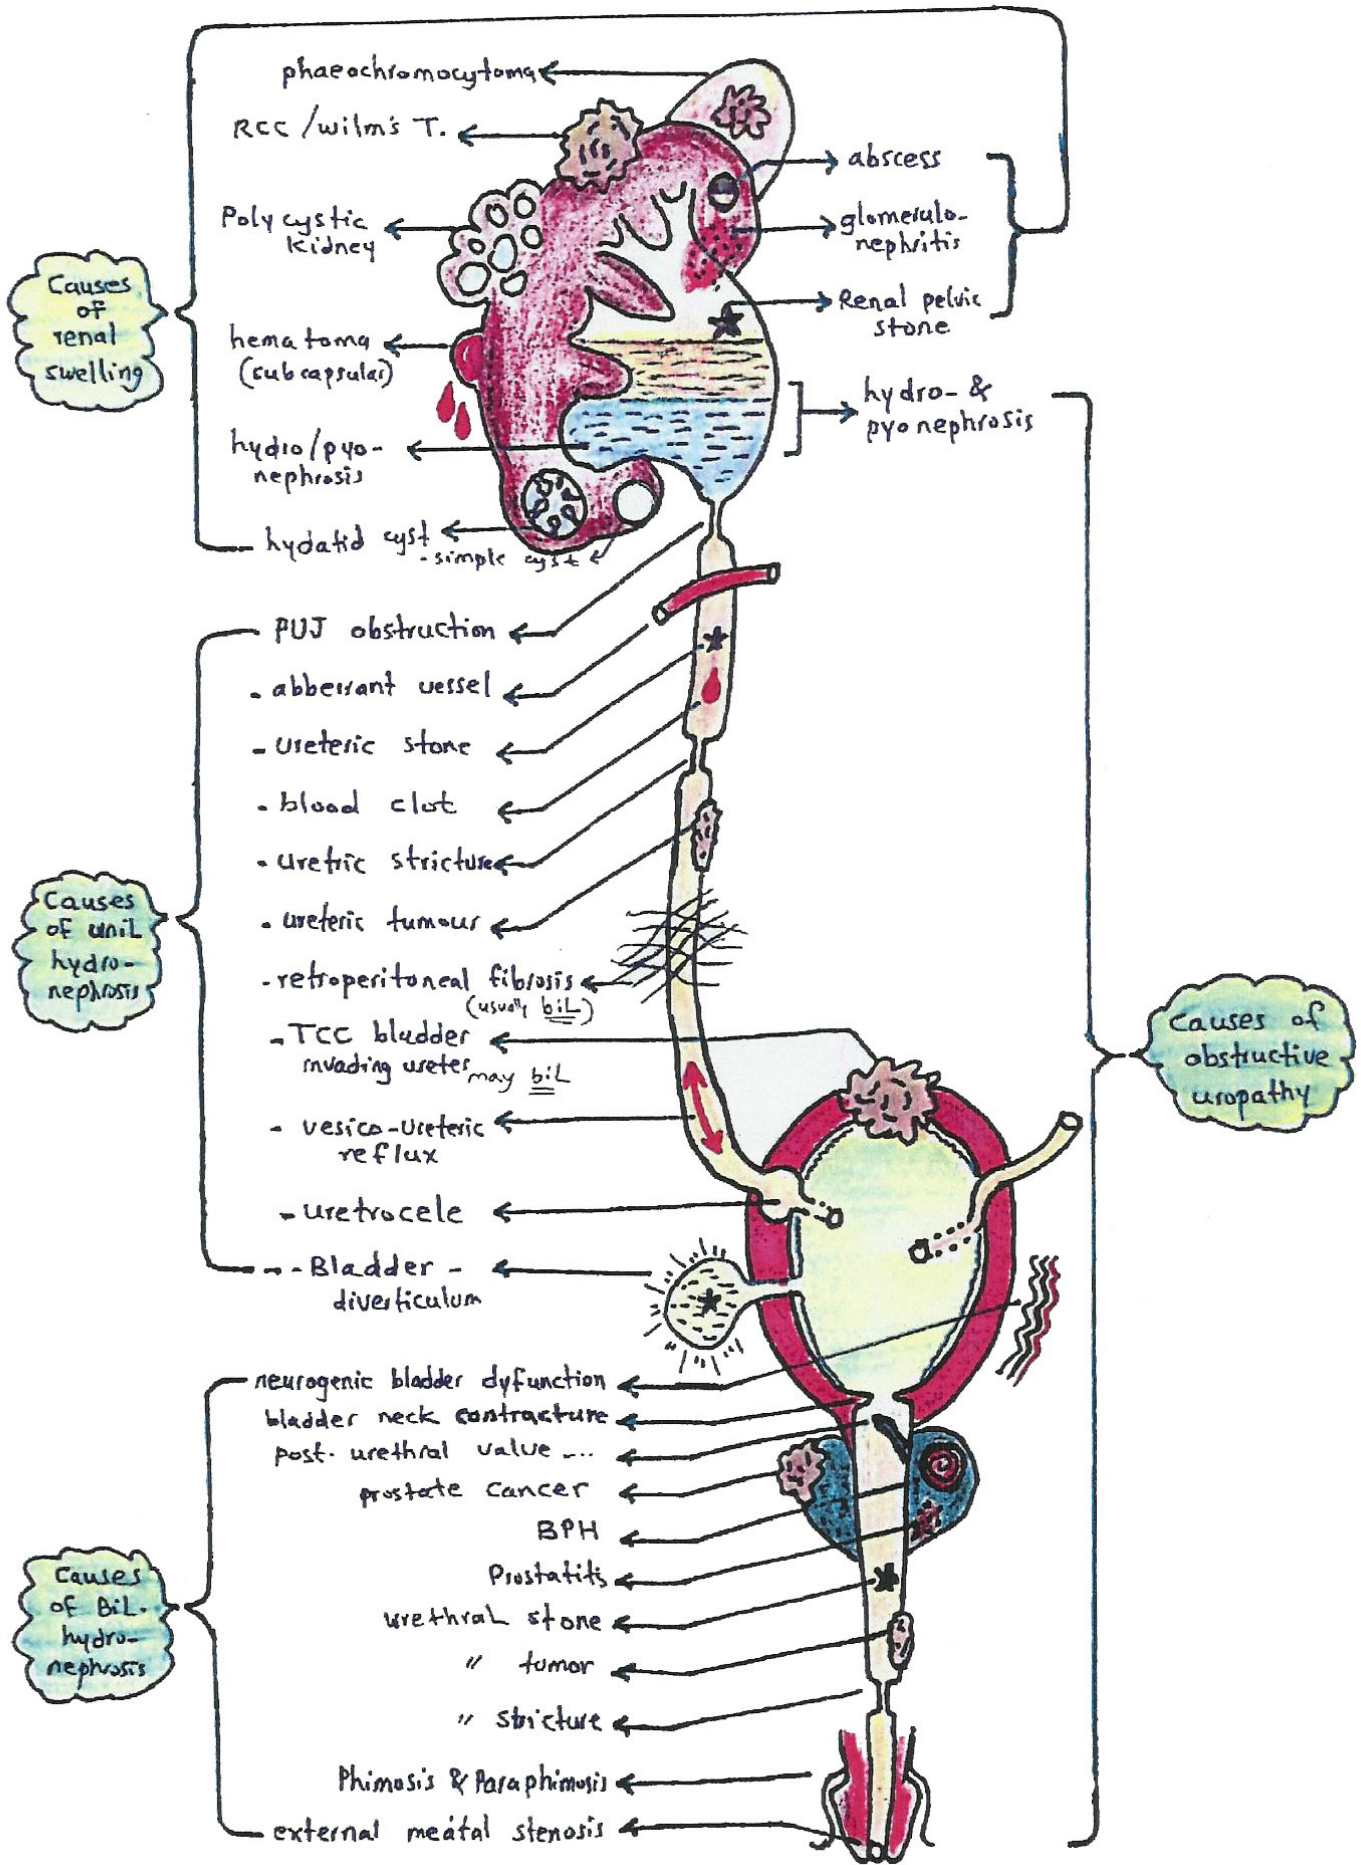 phaeochromocytoma
RCC / wilm's T.
Polycystic
Kidney
hematoma
(subcapsular)
hydro/pyo-
nephrosis
hydatid cyst
- simple cyst
abscess
glomerulo-
nephritis
Renal pelvic
stone
hydro- &
pyonephrosis
Causes
of
renal
swelling
PUJ obstruction
- abberrant vessel
- ureteric stone
- blood clot
- uretric stricture
- ureteric tumour
- retroperitoneal fibrosis
(usually biL)
- TCC bladder
invading ureter may biL
- vesico-ureteric
reflux
- uretrocele
- - Bladder -
diverticulum
Causes
of uniL
hydro-
nephrosis
Causes of
obstructive
uropathy
neurogenic bladder dyfunction
bladder neck contracture
post. urethral value ....
prostate cancer
BPH
Prostatitis
urethraL stone
" tumor
" stricture
Phimosis & Paraphimosis
external meatal stenosis
Causes
of BiL.
hydro-
nephrosis